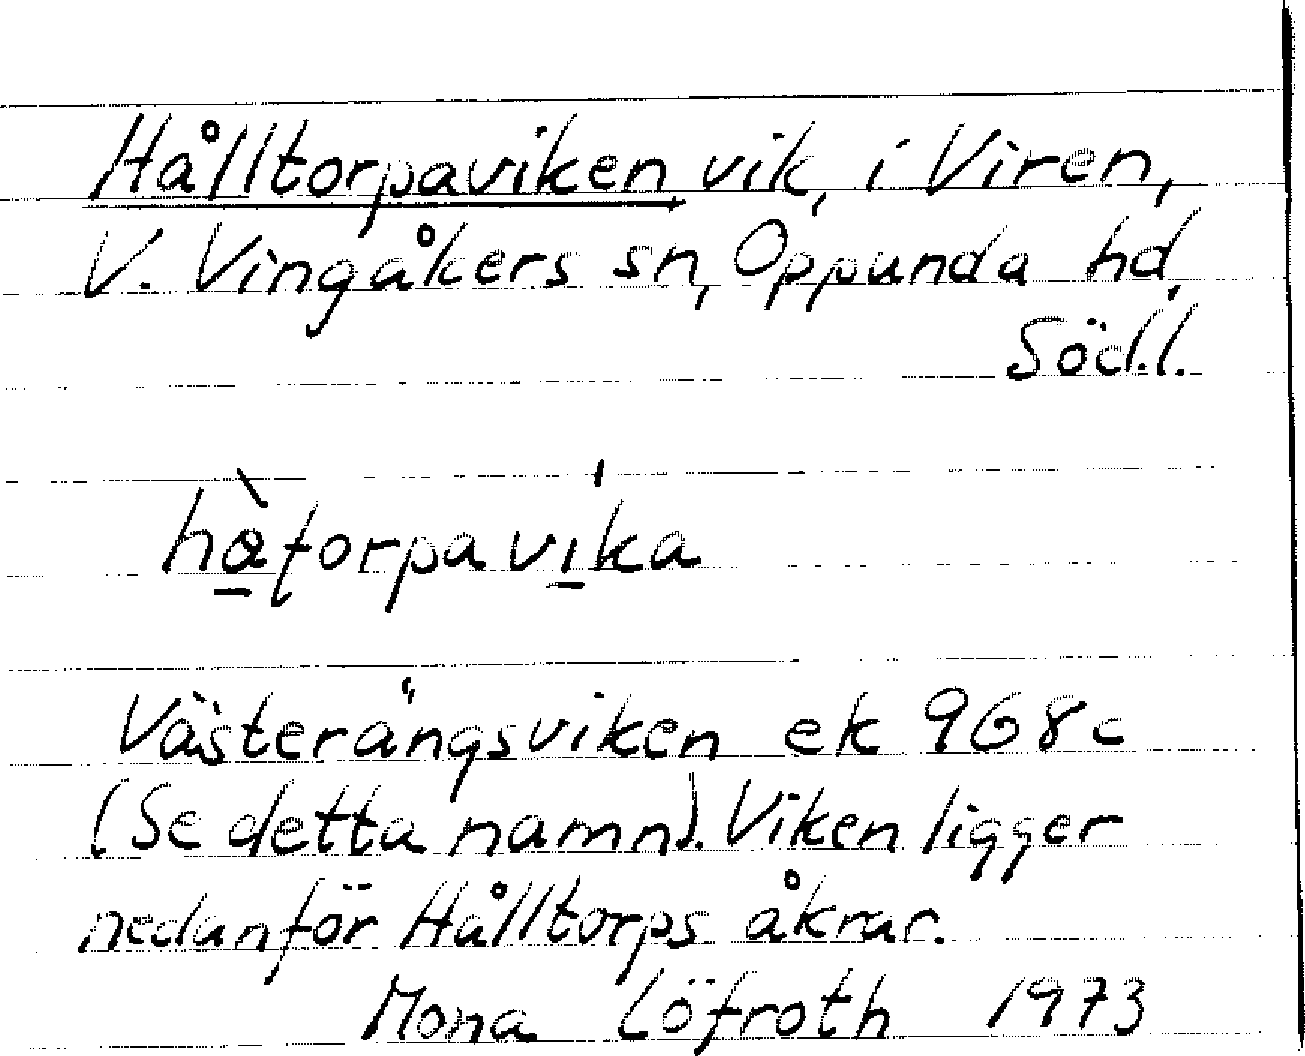 Hålltorpaviken vik, i Viren,
V. Vingåkers sn, Oppunda hd,
Söd.l.
hàtorpavika
Västerängsviken ek 968c
(Se detta namn). Viken ligger
nedanför Hålltorps åkrar.
Mona Löfroth 1973